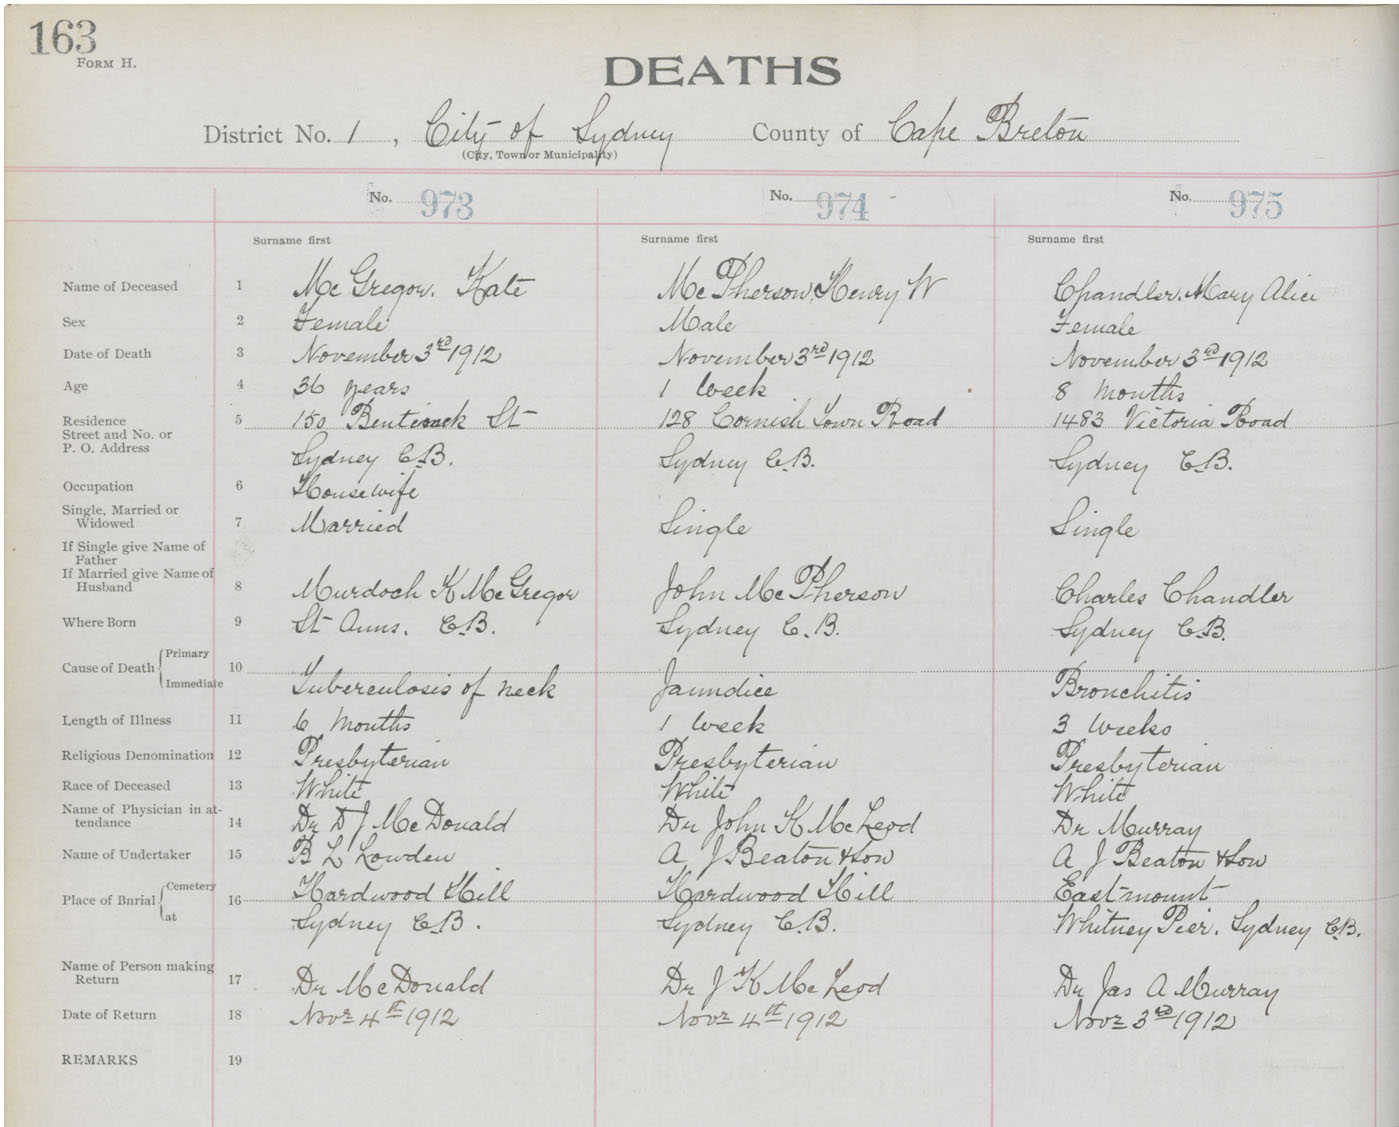 163
FORM H.
DEATHS
District No. 1, City of Sydney County of Cape Breton
(City, Town or Municipality)
No. 973 No. 974 No. 975
Surname first Surname first Surname first
Name of Deceased 1 McGregor. Kate McPherson, Henry W Chandler. Mary Alice
Sex 2 Female Male Female
Date of Death 3 November 3rd 1912 November 3rd 1912 November 3rd 1912
Age 4 36 years 1 Week 8 Months
Residence
Street and No. or
P. O. Address
5 150 Bentinck St 128 Cornish Town Road 1483 Victoria Road
Sydney C.B. Sydney C.B. Sydney C.B.
Occupation 6 Housewife
Single, Married or
Widowed 7 Married Single Single
If Single give Name of
Father
If Married give Name of
Husband 8 Murdoch K McGregor John McPherson Charles Chandler
Where Born 9 St Anns. C.B. Sydney C.B. Sydney C.B.
Cause of Death { Primary
Immediate
10 Tuberculosis of neck Jaundice Bronchitis
Length of Illness 11 6 Months 1 Week 3 Weeks
Religious Denomination 12 Presbyterian Presbyterian Presbyterian
Race of Deceased 13 White White White
Name of Physician in at-
tendance 14 Dr D J McDonald Dr John K McLeod Dr Murray
Name of Undertaker 15 B L Lowden A J Beaton & Son A J Beaton & Son
Place of Burial { Cemetery
at
16 Hardwood Hill Hardwood Hill Eastmount
Sydney C.B. Sydney C.B. Whitney Pier. Sydney C.B.
Name of Person making
Return 17 Dr McDonald Dr J K McLeod Dr Jas A Murray
Date of Return 18 Novr 4th 1912 Novr 4th 1912 Novr 3rd 1912
REMARKS 19